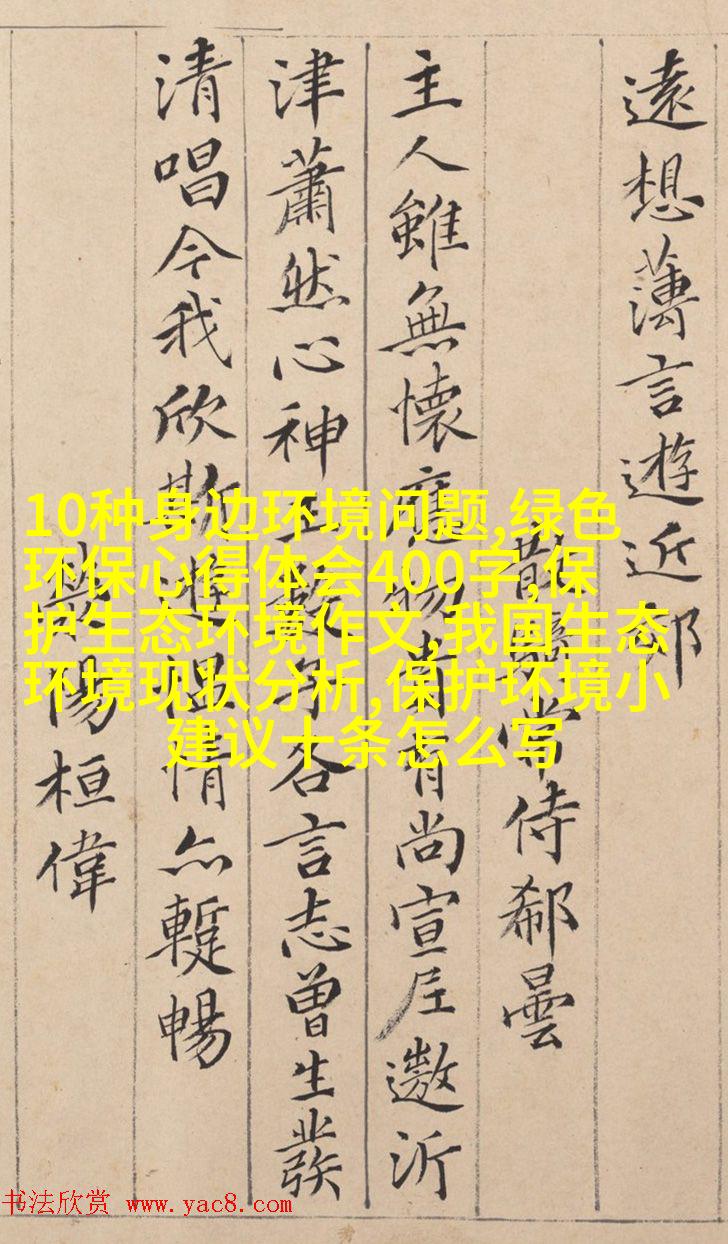 遠想薄言遊近郊
散騎常侍郗曇
主人雖無懷應物貴有尚宣尼遨沂
津蕭然心神王數子各言志曾生發
清唱今我欣斯遊愠情亦蹔暢
陽桓偉
10种身边环境问题,绿色
环保心得体会400字,保
护生态环境作文,我国生态
环境现状分析,保护环境小
建议十条怎么写
书法欣赏 www.yac8.com